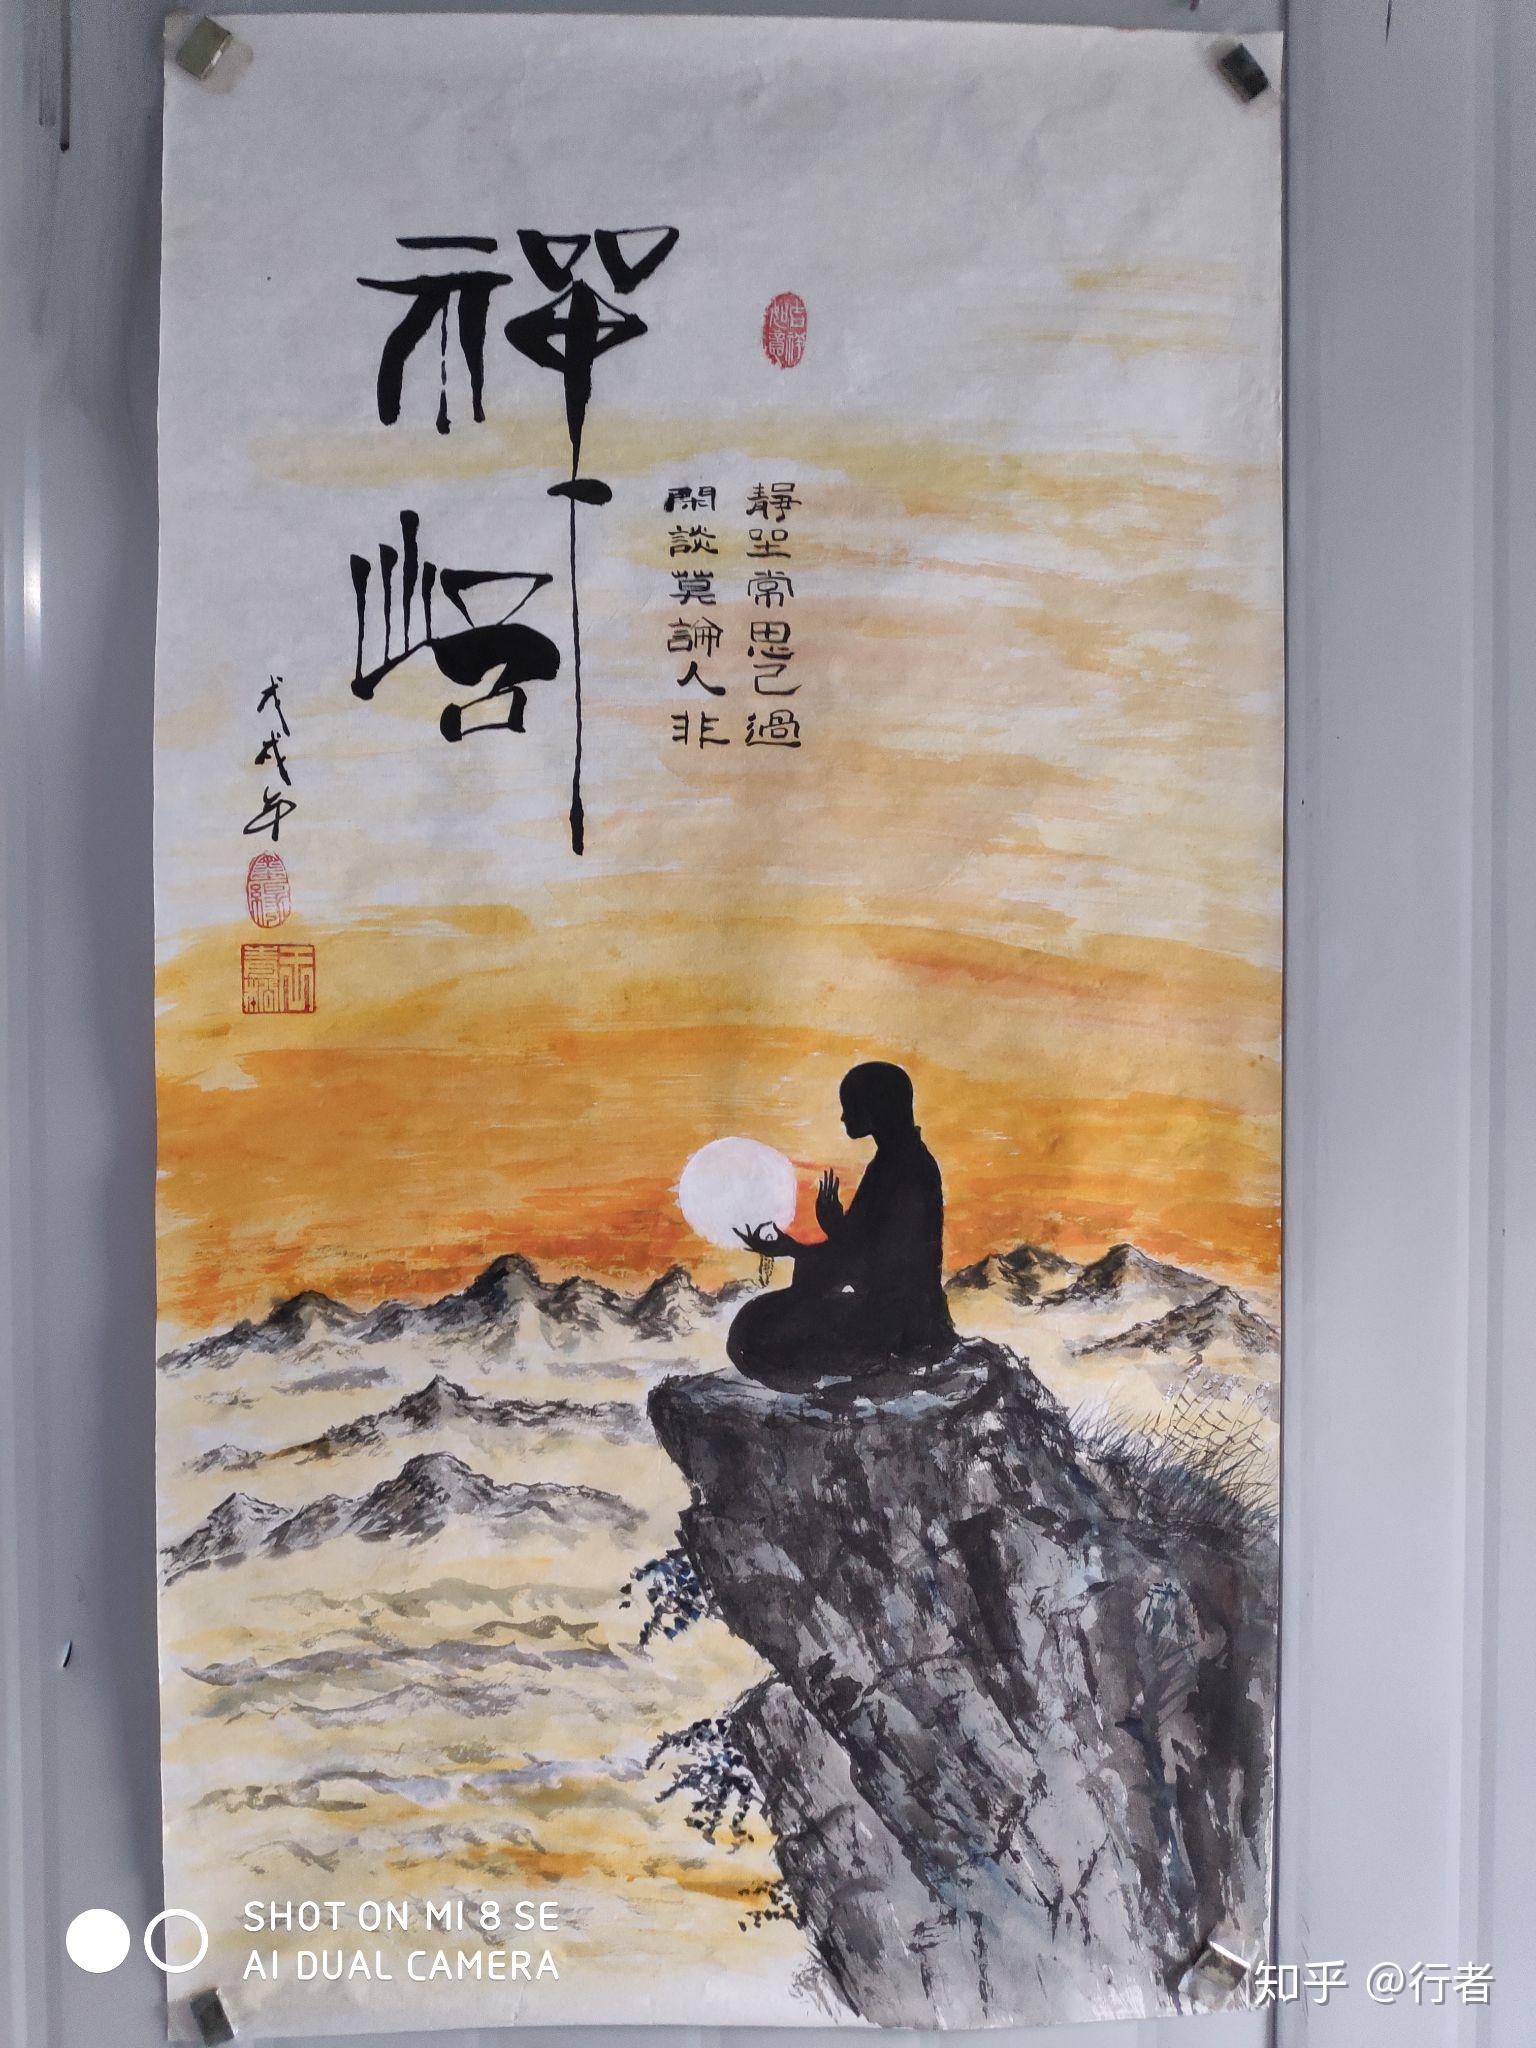 吉祥如意
靜坐常思己過
閑談莫論人非
禪悟
戊戌年
墨緣
SHOT ON MI 8 SE
AI DUAL CAMERA
知乎 @行者